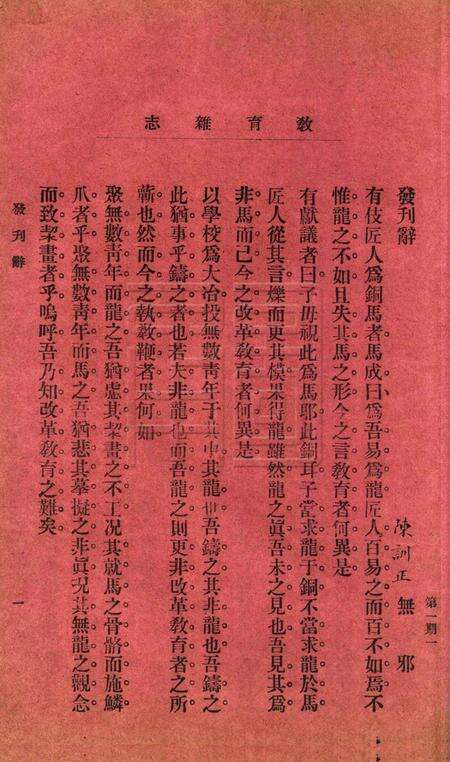 教育雜志
第一期一
發刊辭
陳訓正無邪
有伎匠人爲銅馬者馬成曰爲吾易爲龍匠人百易之而百不如焉不
惟龍之不如且失其馬之形今之言敎育者何異是
有獻議者曰子毋視此爲馬耶此銅耳子當求龍于銅不當求龍於馬
匠人從其言爍而更其模果得龍雖然龍之眞吾未之見也吾見其爲
非馬而已今之改革敎育者何異是
以學校爲大冶投無數靑年于其中其龍也吾鑄之其非龍也吾鑄之
此猶事乎鑄之者也若夫非龍也而吾龍之則更非改革敎育者之所
蘄也然而今之執敎鞭者果何如
聚無數靑年而龍之吾猶慮其栔畫之不工况其就馬之骨骼而施鱗
爪者乎聚無數靑年而馬之吾猶悲其摹擬之非眞况其無龍之觀念
而致栔畫者乎嗚呼吾乃知改革敎育之難矣
發刊辭
一